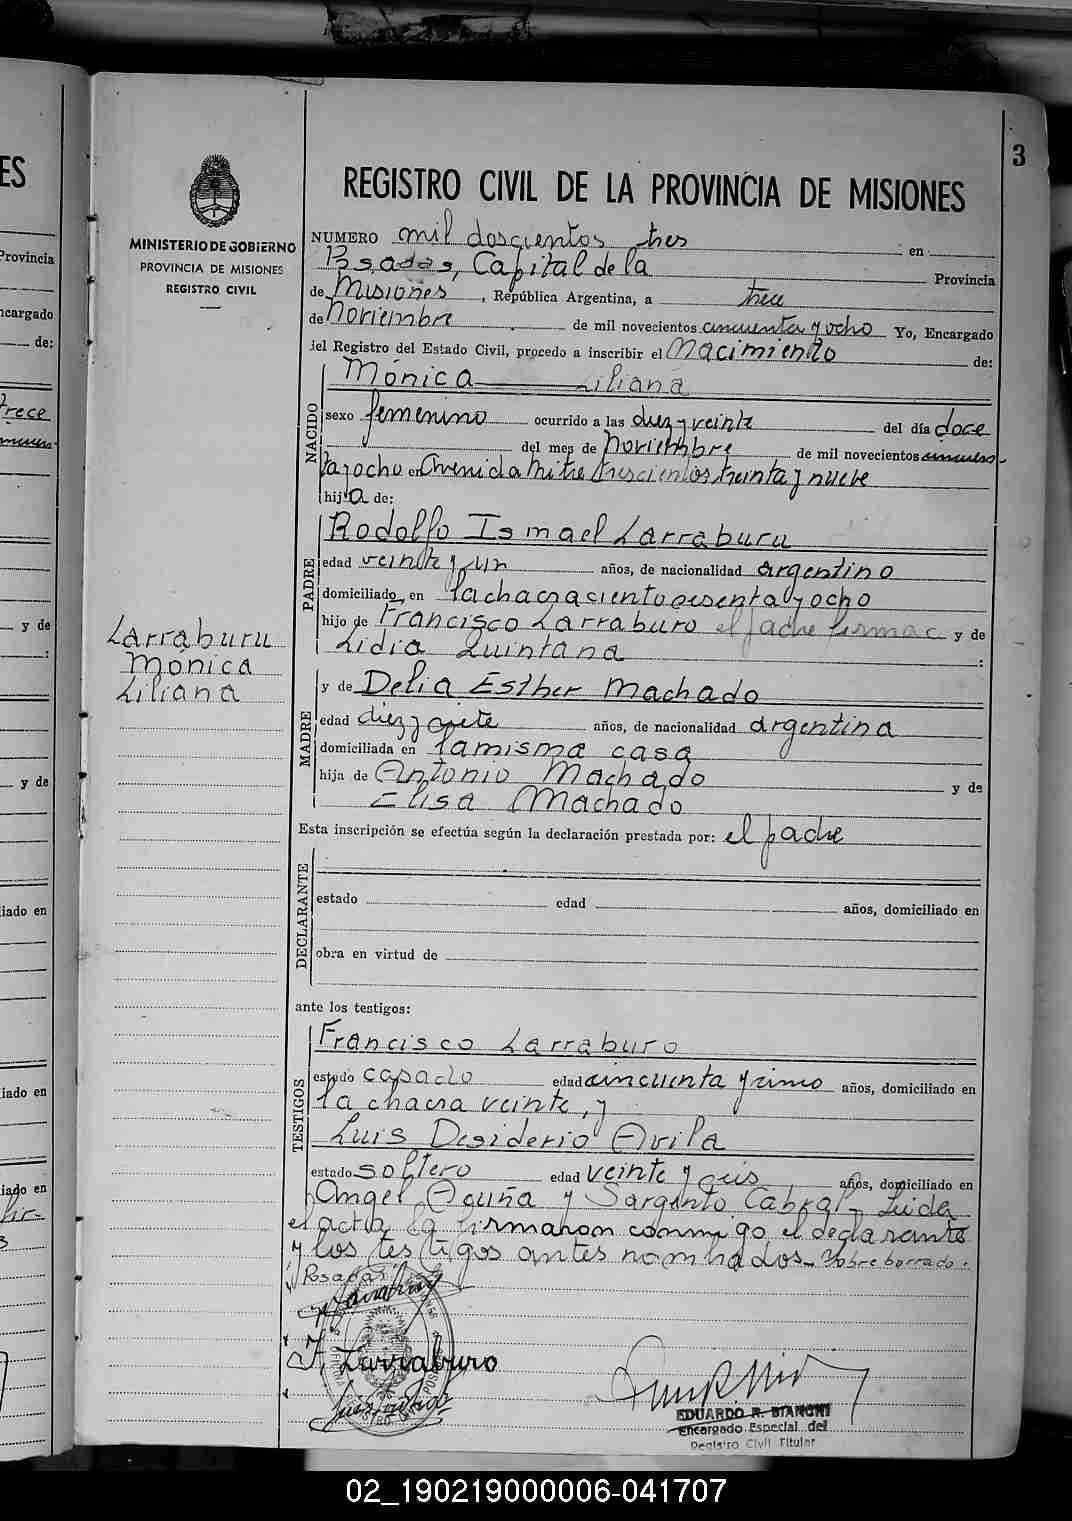 ES
Provincia
ncargado
de:
trece
y de
:
y de
iado en
iado en
iado en
3
MINISTERIO DE GOBIERNO
PROVINCIA DE MISIONES
REGISTRO CIVIL
Larraburu
Mónica
Liliana
REGISTRO CIVIL DE LA PROVINCIA DE MISIONES
NUMERO mil doscientos tres en
Posadas, Capital de la Provincia
de Misiones, República Argentina, a trece
de noviembre de mil novecientos cincuenta y ocho Yo, Encargado
del Registro del Estado Civil, procedo a inscribir el Nacimiento de:
NACIDO
Mónica Liliana
sexo femenino ocurrido a las diez y veinte del día doce
del mes de noviembre de mil novecientos cincuen-
ta y ocho en Avenida Mitre trescientos treinta y nueve
hija de:
PADRE
Rodolfo Ismael Larraburu
edad veinte y un años, de nacionalidad argentino
domiciliado en la chacra ciento sesenta y ocho
hijo de Francisco Larraburo el padre y de
Lidia Quintana :
MADRE
y de Delia Esther Machado
edad diez y siete años, de nacionalidad argentina
domiciliada en la misma casa
hija de Antonio Machado y de
Elisa Machado
Esta inscripción se efectúa según la declaración prestada por: el padre
DECLARANTE
estado edad años, domiciliado en
obra en virtud de
ante los testigos:
TESTIGOS
Francisco Larraburo
estado casado edad cincuenta y cinco años, domiciliado en
la chacra veinte, y
Luis Desiderio Avila
estado soltero edad veinte y seis años, domiciliado en
Angel Acuña y Sargento Cabral, Leida
el acta la firmaron conmigo, el declarante
y los testigos antes nombrados- sobre borrado:
Posadas
F Larraburo
EDUARDO R. BIANGNI
Encargado Especial del
Registro Civil Titular
02_190219000006-041707